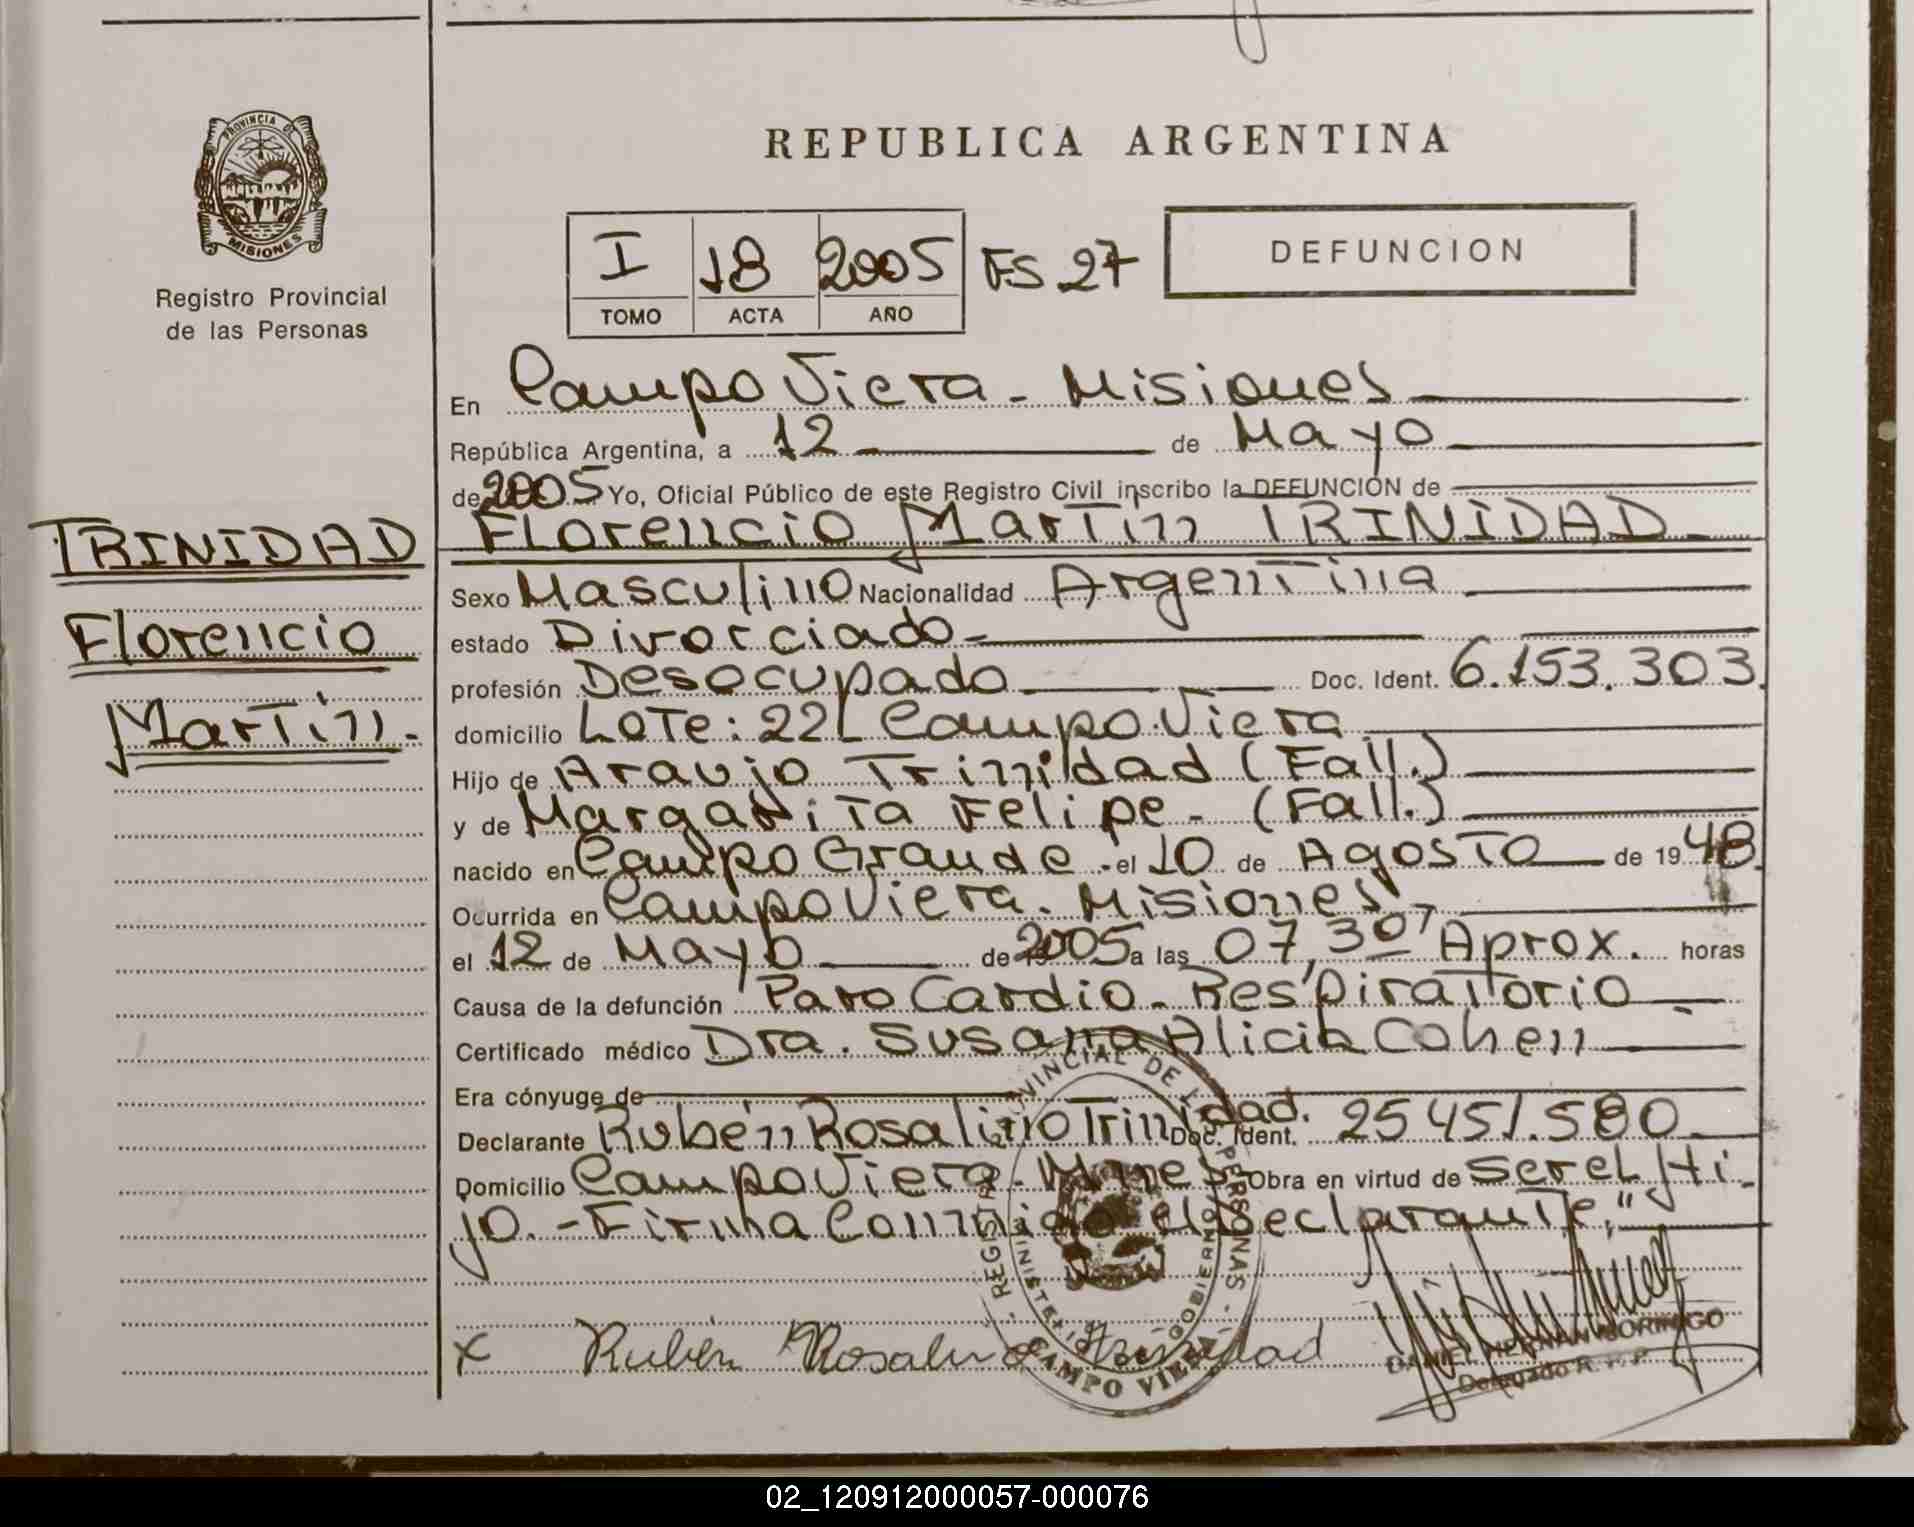 PROVINCIA DE
MISIONES
Registro Provincial
de las Personas
TRINIDAD
Florencio
Martín.
REPUBLICA ARGENTINA
I 18 2005 FS 27
TOMO ACTA AÑO
DEFUNCION
En Campo Viera - Misiones
República Argentina, a 12 de Mayo
de 2005 Yo, Oficial Público de este Registro Civil inscribo la DEFUNCION de
Florencio Martín TRINIDAD
Sexo Masculino Nacionalidad Argentina
estado Divorciado
profesión Desocupado Doc. Ident. 6.153.303
domicilio Lote: 22 Campo Viera
Hijo de Araujo Trinidad (Fall.)
y de Margarita Felipe - (Fall.)
nacido en Campo Grande - el 10 de Agosto de 1948.
Ocurrida en Campo Viera. Misiones
el 12 de Mayo de 2005 a las 07,30' Aprox. horas
Causa de la defunción Paro Cardio - Respiratorio
Certificado médico Dra. Susana Alicia Cohen
Era cónyuge de
Declarante Rubén Rosalino Trinidad. Doc. Ident. 25 451.580
Domicilio Campo Viera - Mnes Obra en virtud de ser el Hi-
jo. - Firma Conmigo el Declarante,"
x Rubén Rosalino Trinidad
CAMPO VIERA
DANIEL HERNAN DORINGO
Delegado R. P. P.
02_120912000057-000076